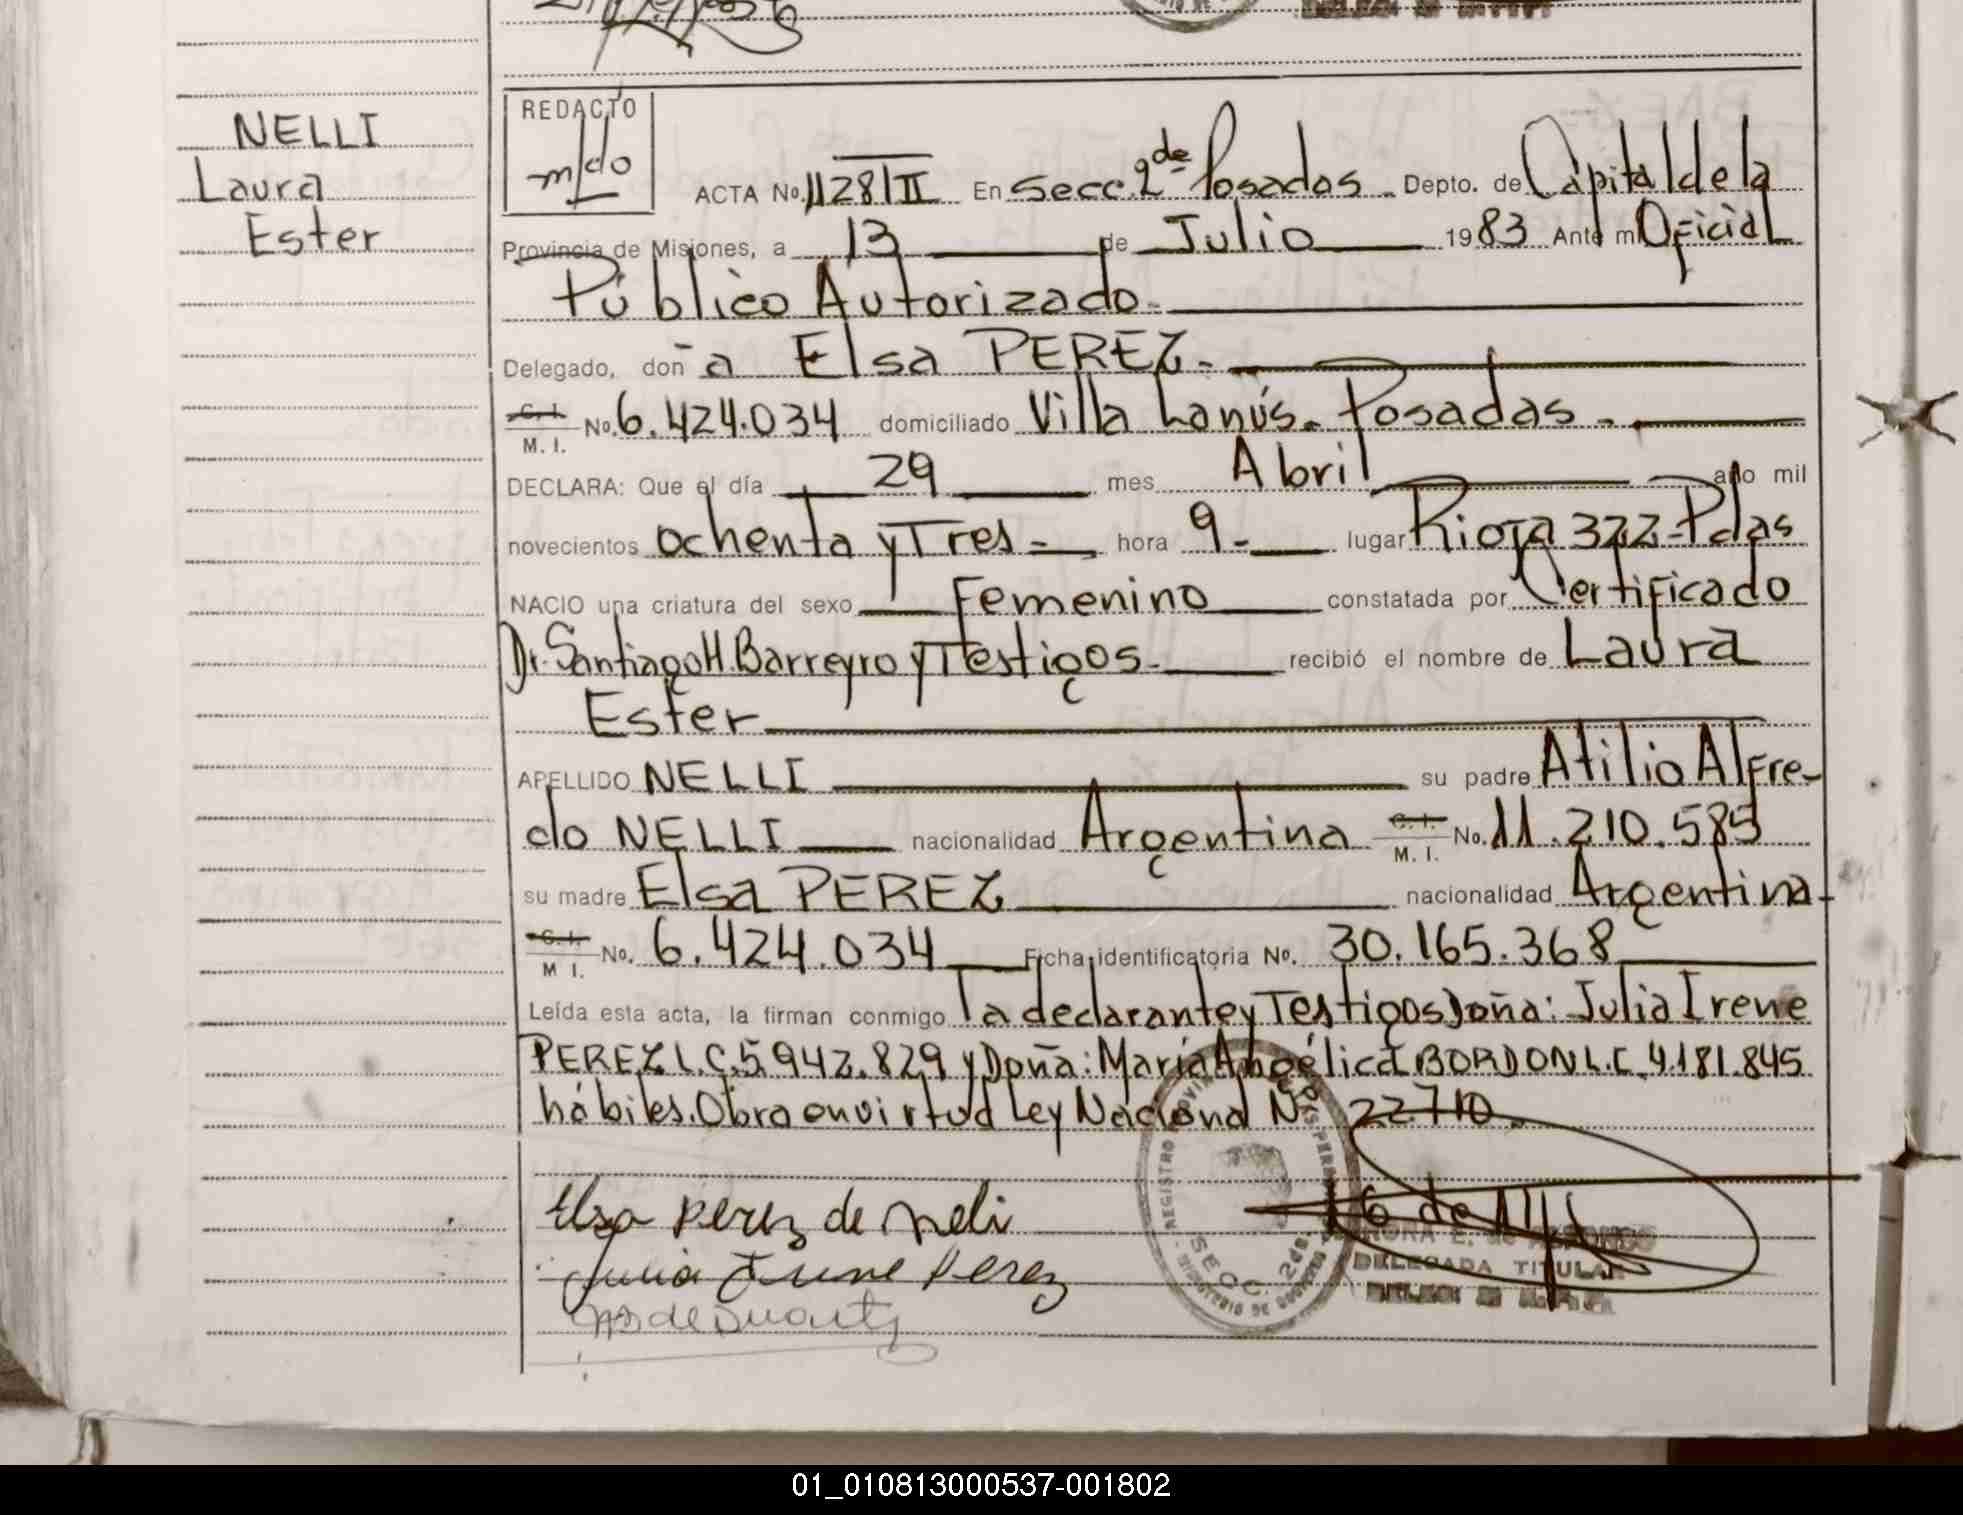 NELLI
Laura
Ester
REDACTO
m/do
ACTA No. 1128/II En Secc. 2da Posadas - Depto. de Capital de la
Provincia de Misiones, a 13 de Julio 1983 Ante mi Oficial
Público Autorizado-
Delegado, doña Elsa PEREZ-
C. I. M. I. No. 6.424.034 domiciliado Villa Lanús- Posadas-
DECLARA: Que el día 29 mes Abril año mil
novecientos ochenta y Tres- hora 9- lugar Rioja 322-Pdas
NACIO una criatura del sexo Femenino constatada por Certificado
Dr. Santiago H. Barreyro y Testigos- recibió el nombre de Laura
Ester
APELLIDO NELLI su padre Atilio Alfre-
do NELLI nacionalidad Argentina C. I. M. I. No. 11.210.585
su madre Elsa PEREZ nacionalidad Argentina-
C. I. M I. No. 6.424.034 Ficha identificatoria No. 30.165.368
Leída esta acta, la firman conmigo la declarante y Testigos Doña: Julia Irene
PEREZ L.C. 5.942.829 y Doña: María Angélica BORDON L.C. 4.181.845
hábiles. Obro en virtud Ley Nacional Nº 22.710.
Elsa Perez de Neli
Julia Irene Perez
de Duarte
REGISTRO PROVIN
SECC. 2da
DELEGADA TITULAR
01_010813000537-001802